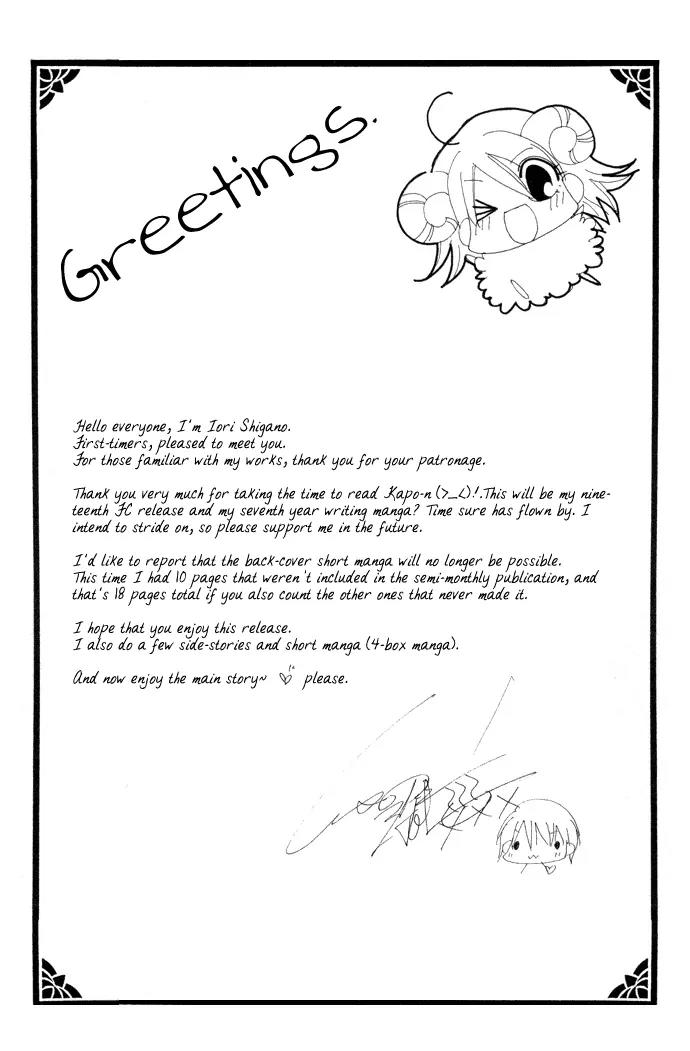 Greetings.
Hello everyone, I'm Iori Shigano.
First-timers, pleased to meet you.
For those familiar with my works, thank you for your patronage.
Thank you very much for taking the time to read Kapo-n (>_<)!.This will be my nine-
teenth FC release and my seventh year writing manga? Time sure has flown by. I
intend to stride on, so please support me in the future.
I'd like to report that the back-cover short manga will no longer be possible.
This time I had 10 pages that weren't included in the semi-monthly publication, and
that's 18 pages total if you also count the other ones that never made it.
I hope that you enjoy this release.
I also do a few side-stories and short manga (4-box manga).
And now enjoy the main story~ ♡ please.